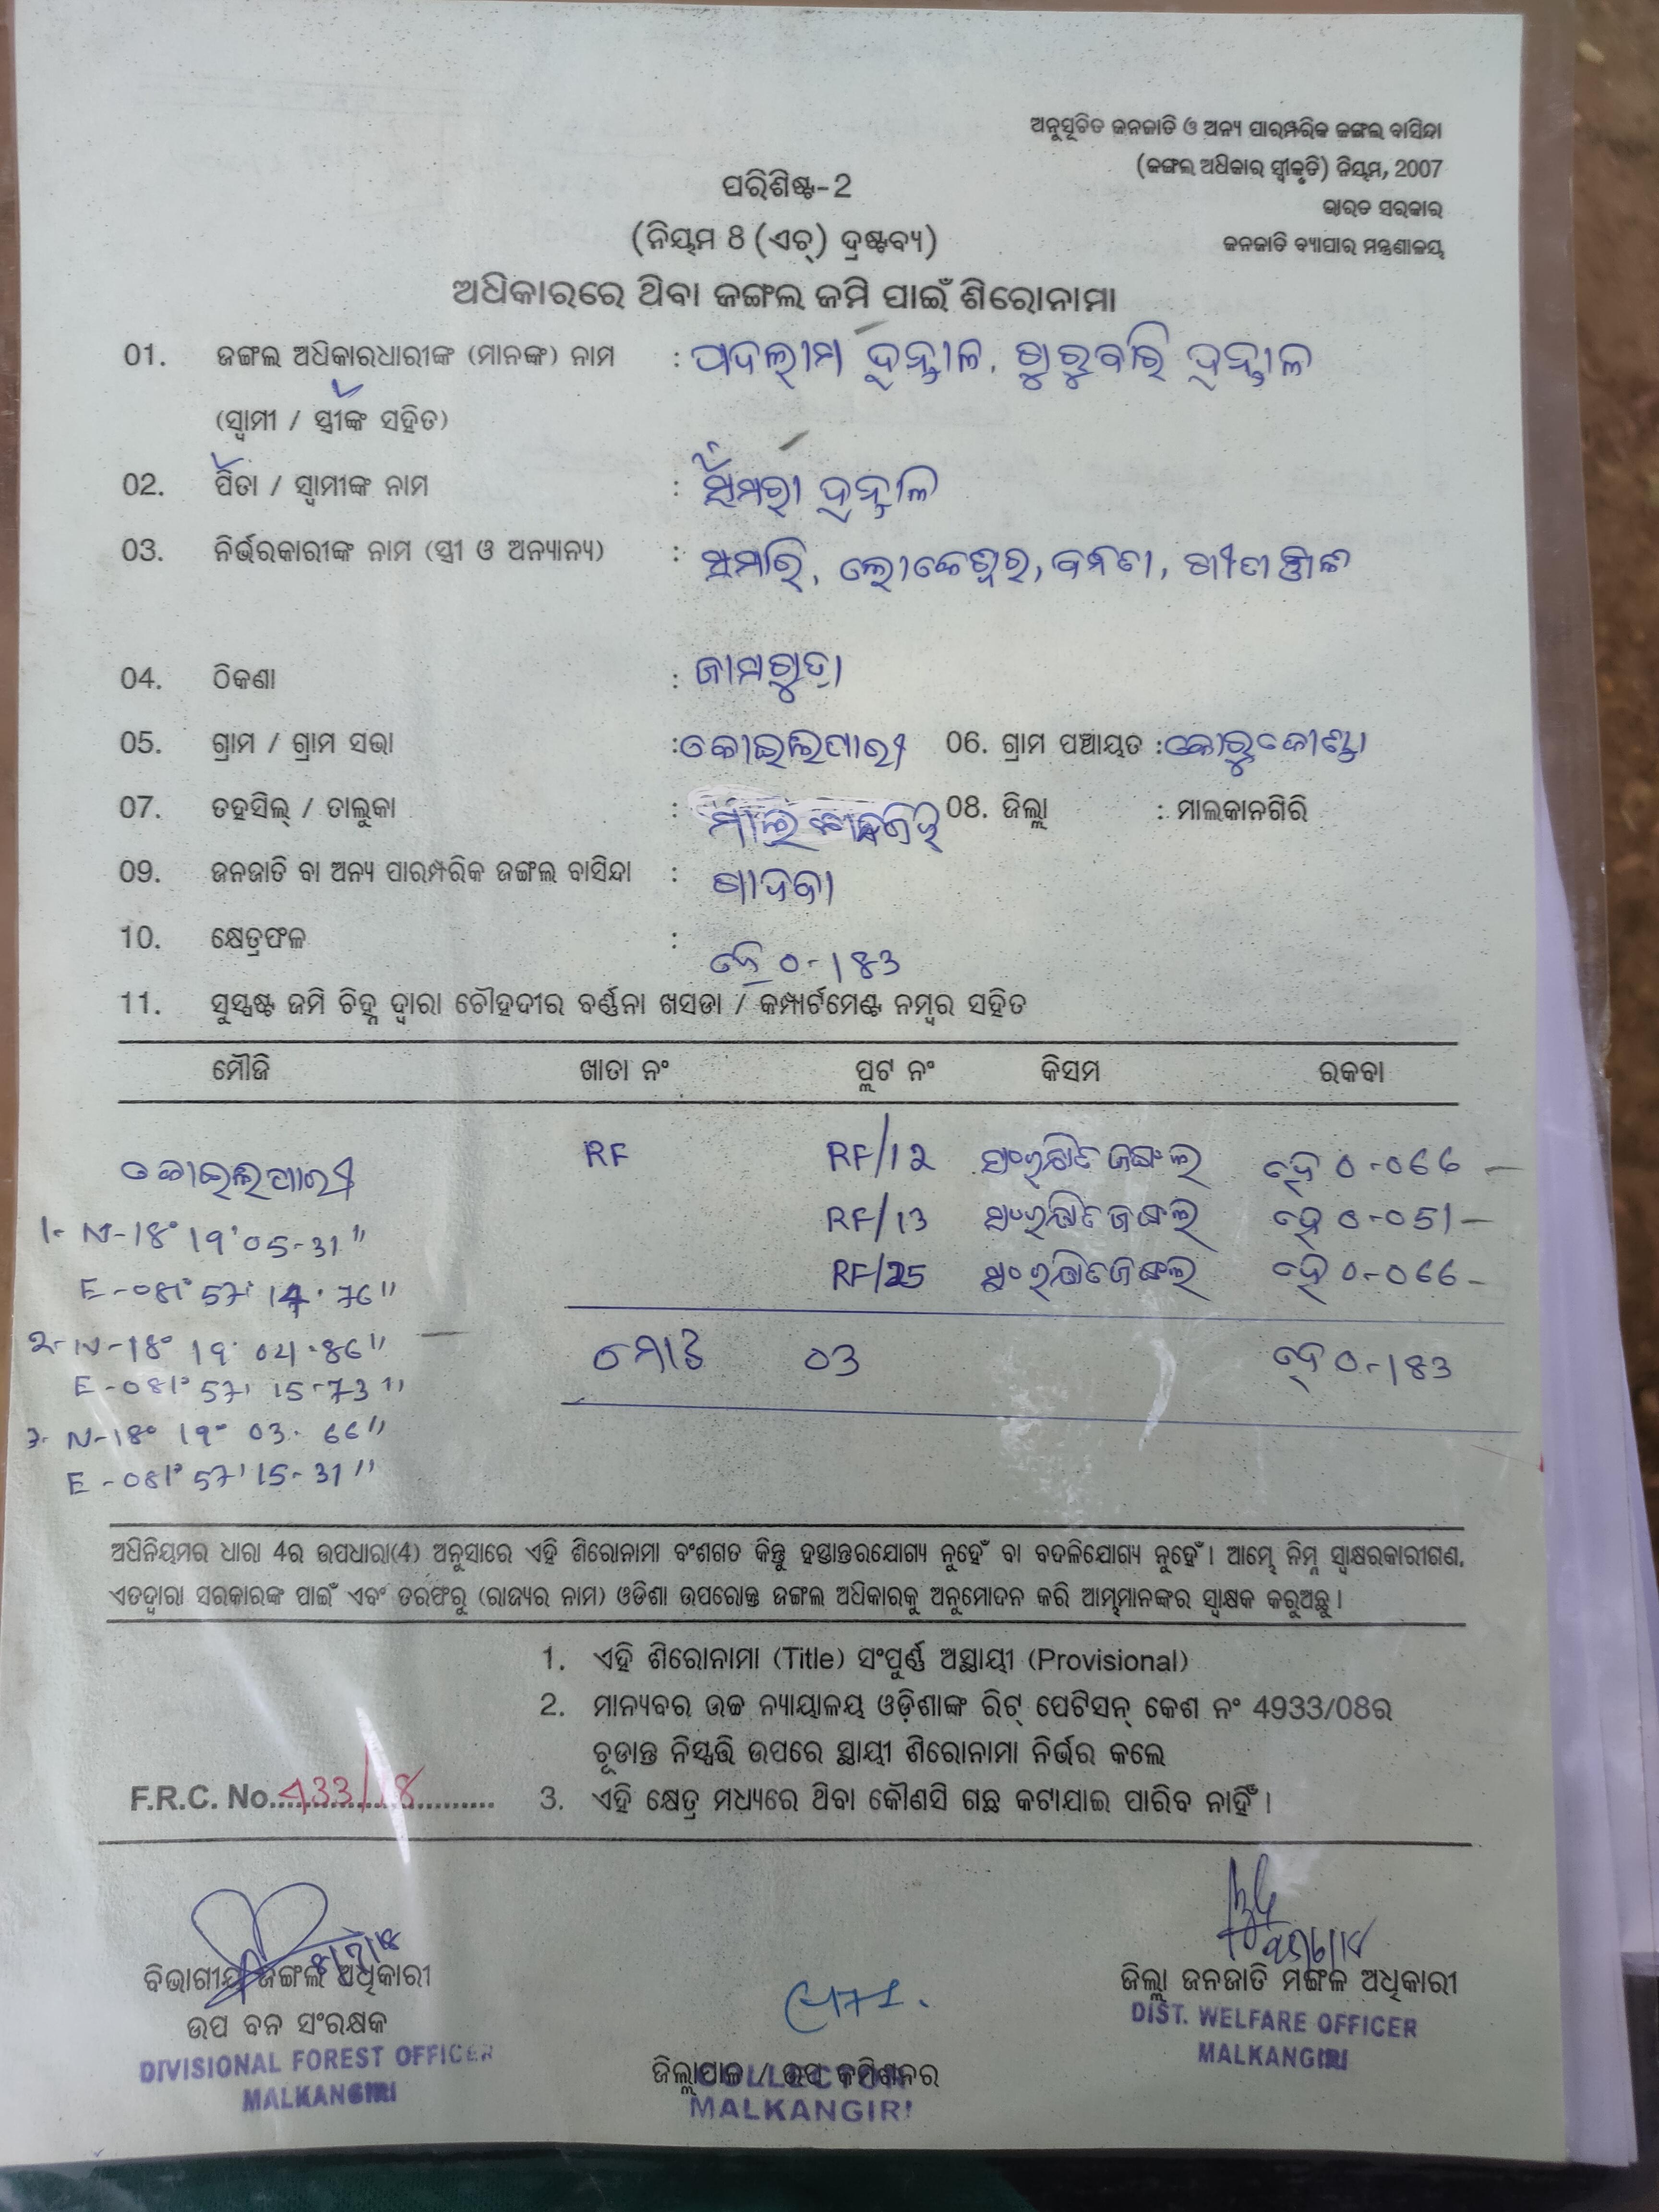 ଅନୁସୂଚିତ ଜନଜାତି ଓ ଅନ୍ୟ ପାରମ୍ପରିକ ଜଙ୍ଗଲ ବାସିନ୍ଦା
(ଜଙ୍ଗଲ ଅଧିକାର ସ୍ୱୀକୃତି) ନିୟମ, 2007
ଭାରତ ସରକାର
ଜନଜାତି ବ୍ୟାପାର ମନ୍ତ୍ରଣାଳୟ
ପରିଶିଷ୍ଟ-2
(ନିୟମ 8 (ଏଚ୍) ଦ୍ରଷ୍ଟବ୍ୟ)
ଅଧିକାରରେ ଥିବା ଜଙ୍ଗଲ ଜମି ପାଇଁ ଶିରୋନାମା
01. ଜଙ୍ଗଲ ଅଧିକାରଧାରୀଙ୍କ (ମାନଙ୍କ) ନାମ : ପଦଲାମ ହନ୍ତାଳ, ଗୁରୁବାରି ହନ୍ତାଳ
(ସ୍ୱାମୀ / ସ୍ତ୍ରୀଙ୍କ ସହିତ)
02. ପିତା / ସ୍ୱାମୀଙ୍କ ନାମ : ହନ୍ତାଳ
03. ନିର୍ଭରକାରୀଙ୍କ ନାମ (ସ୍ତ୍ରୀ ଓ ଅନ୍ୟାନ୍ୟ) : ସମାରି, ଲୋକେଶ୍ୱର, ବନିତା, ଗୀତାଞ୍ଜଳୀ
04. ଠିକଣା : ଜାମଗୁଡ଼ା
05. ଗ୍ରାମ / ଗ୍ରାମ ସଭା : କୋଇଲିପାରୀ 06. ଗ୍ରାମ ପଞ୍ଚାୟତ : କୋରୁକୋଣ୍ଡା
07. ତହସିଲ୍ / ତାଲୁକା : 08. ଜିଲ୍ଲା : ମାଲକାନଗିରି
09. ଜନଜାତି ବା ଅନ୍ୟ ପାରମ୍ପରିକ ଜଙ୍ଗଲ ବାସିନ୍ଦା : ଗାଦବା
10. କ୍ଷେତ୍ରଫଳ : ହେ 0-183
11. ସୁସ୍ପଷ୍ଟ ଜମି ଚିହ୍ନ ଦ୍ୱାରା ଚୌହଦୀର ବର୍ଣ୍ଣନା ଖସଡା / କମ୍ପାର୍ଟମେଣ୍ଟ ନମ୍ବର ସହିତ
ମୌଜି ଖାତା ନଂ ପ୍ଲଟ ନଂ କିସମ ରକବା
କୋଇଲିପାରୀ RF RF/12 ସଂରକ୍ଷିତ ଜଙ୍ଗଲ ହେ 0-066
RF/13 ସଂରକ୍ଷିତ ଜଙ୍ଗଲ ହେ 0-051
RF/25 ସଂରକ୍ଷିତ ଜଙ୍ଗଲ ହେ 0-066
ମୋଟ 03 ହେ 0-183
1- N-18° 19' 05-31"
E-081° 57' 14.76"
2- N-18° 19' 04.86"
E-081° 57' 15-73"
3- N-18° 19° 03.66"
E-081° 57' 15-31"
ଅଧିନିୟମର ଧାରା 4ର ଉପଧାରା(4) ଅନୁସାରେ ଏହି ଶିରୋନାମା ବଂଶଗତ କିନ୍ତୁ ହସ୍ତାନ୍ତରଯୋଗ୍ୟ ନୁହେଁ ବା ବଦଳିଯୋଗ୍ୟ ନୁହେଁ। ଆମ୍ଭେ ନିମ୍ନ ସ୍ୱାକ୍ଷରକାରୀଗଣ,
ଏତଦ୍ୱାରା ସରକାରଙ୍କ ପାଇଁ ଏବଂ ତରଫରୁ (ରାଜ୍ୟର ନାମ) ଓଡିଶା ଉପରୋକ୍ତ ଜଙ୍ଗଲ ଅଧିକାରକୁ ଅନୁମୋଦନ କରି ଆମ୍ଭମାନଙ୍କର ସ୍ୱାକ୍ଷକ କରୁଅଛୁ।
1. ଏହି ଶିରୋନାମା (Title) ସଂପୂର୍ଣ୍ଣ ଅସ୍ଥାୟୀ (Provisional)
2. ମାନ୍ୟବର ଉଚ୍ଚ ନ୍ୟାୟାଳୟ ଓଡ଼ିଶାଙ୍କ ରିଟ୍ ପେଟିସନ୍ କେଶ ନଂ 4933/08ର
ଚୂଡାନ୍ତ ନିସ୍ପତ୍ତି ଉପରେ ସ୍ଥାୟୀ ଶିରୋନାମା ନିର୍ଭର କଲେ
3. ଏହି କ୍ଷେତ୍ର ମଧ୍ୟରେ ଥିବା କୌଣସି ଗଛ କଟାଯାଇ ପାରିବ ନାହିଁ।
F.R.C. No. 433/18
ବିଭାଗୀୟ ଜଙ୍ଗଲ ଅଧିକାରୀ
ଉପ ବନ ସଂରକ୍ଷକ
DIVISIONAL FOREST OFFICER
MALKANGIRI
ଜିଲ୍ଲାପାଳ / ଉପ କମିଶନର
COLLECTOR
MALKANGIRI
ଜିଲ୍ଲା ଜନଜାତି ମଙ୍ଗଳ ଅଧିକାରୀ
DIST. WELFARE OFFICER
MALKANGIRI